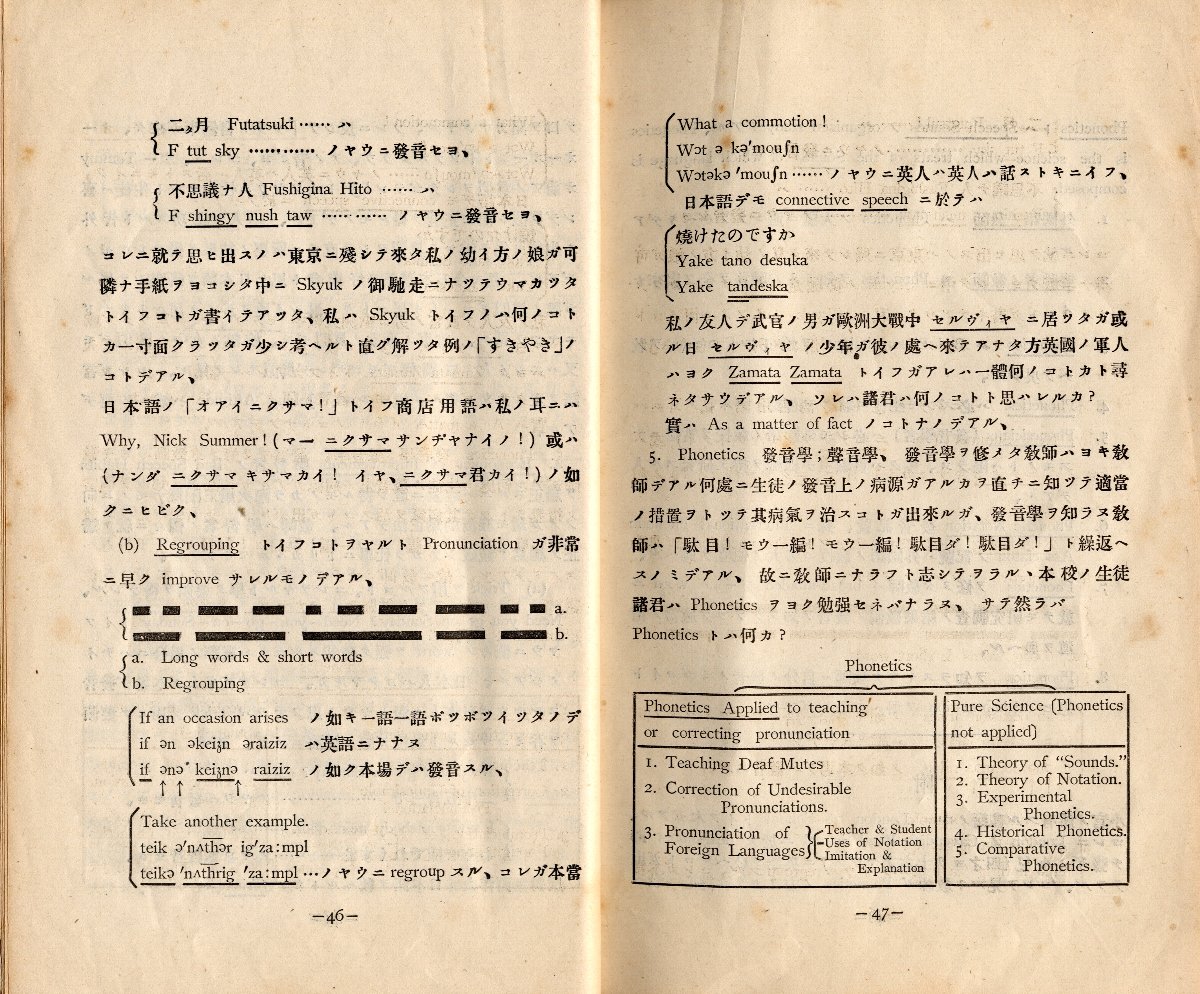 二タ月 Futatsuki …… ハ
F tut sky ………… ノヤウニ發音セヨ、
不思議ナ人 Fushigina Hito …… ハ
F shingy nush taw ………… ノヤウニ發音セヨ、
コレニ就テ思ヒ出スノハ東京ニ殘シテ來タ私ノ幼イ方ノ娘ガ可
隣ナ手紙ヲヨコシタ中ニ Skyuk ノ御馳走ニナツテウマカツタ
トイフコトガ書イテアツタ、私ハ Skyuk トイフノハ何ノコト
カ一寸面クラツタガ少シ考ヘルト直グ解ツタ例ノ「すきやき」ノ
コトデアル、
日本語ノ「オアイニクサマ！」トイフ商店用語ハ私ノ耳ニハ
Why, Nick Summer! (マー ニクサマ サンヂヤナイノ！) 或ハ
(ナンダ ニクサマ キサマカイ！ イヤ、ニクサマ君カイ！) ノ如
クニヒビク、
(b) Regrouping トイフコトヲヤルト Pronunciation ガ非常
ニ早ク improve サレルモノデアル、
a.
b.
a. Long words & short words
b. Regrouping
If an occasion arises ノ如キ一語一語ボツボツイツタノデ
if ən əkeiʒn əraiziz ハ英語ニナナヌ
if ənə keiʒnə raiziz ノ如ク本場デハ發音スル、
↑↑ ↑
Take another example.
teik ə'nʌthər ig'za:mpl
teikə 'nʌthrig 'za:mpl …ノヤウニ regroup スル、コレガ本當
—46—
What a commotion!
Wɔt ə kə'mouʃn
Wɔtəkə 'mouʃn …… ノヤウニ英人ハ英人ハ話ストキニイフ、
日本語デモ connective speech ニ於テハ
燒けたのですか
Yake tano desuka
Yake tandeska
私ノ友人デ武官ノ男ガ歐洲大戰中 セルヴィヤ ニ居ツタガ或
ル日 セルヴィヤ ノ少年ガ彼ノ處ヘ來テアナタ方英國ノ軍人
ハヨク Zamata Zamata トイフガアレハ一體何ノコトカト尋
ネタサウデアル、 ソレハ諸君ハ何ノコトト思ハレルカ？
實ハ As a matter of fact ノコトナノデアル、
5. Phonetics 發音學；聲音學、 發音學ヲ修メタ敎師ハヨキ敎
師デアル何處ニ生徒ノ發音上ノ病源ガアルカヲ直チニ知ツテ適當
ノ措置ヲトツテ其病氣ヲ治スコトガ出來ルガ、發音學ヲ知ラヌ敎
師ハ「駄目！モウ一編！モウ一編！駄目ダ！駄目ダ！」ト繰返ヘ
スノミデアル、 故ニ敎師ニナラフト志シテヲラル丶本校ノ生徒
諸君ハ Phonetics ヲヨク勉强セネバナラヌ、 サテ然ラバ
Phonetics トハ何カ？
Phonetics
Phonetics Applied to teaching
or correcting pronunciation
1. Teaching Deaf Mutes
2. Correction of Undesirable
Pronunciations.
3. Pronunciation of
Foreign Languages
Teacher & Student
Uses of Notation
Imitation &
Explanation
Pure Science (Phonetics
not applied)
1. Theory of "Sounds."
2. Theory of Notation.
3. Experimental
Phonetics.
4. Historical Phonetics.
5. Comparative
Phonetics.
—47—